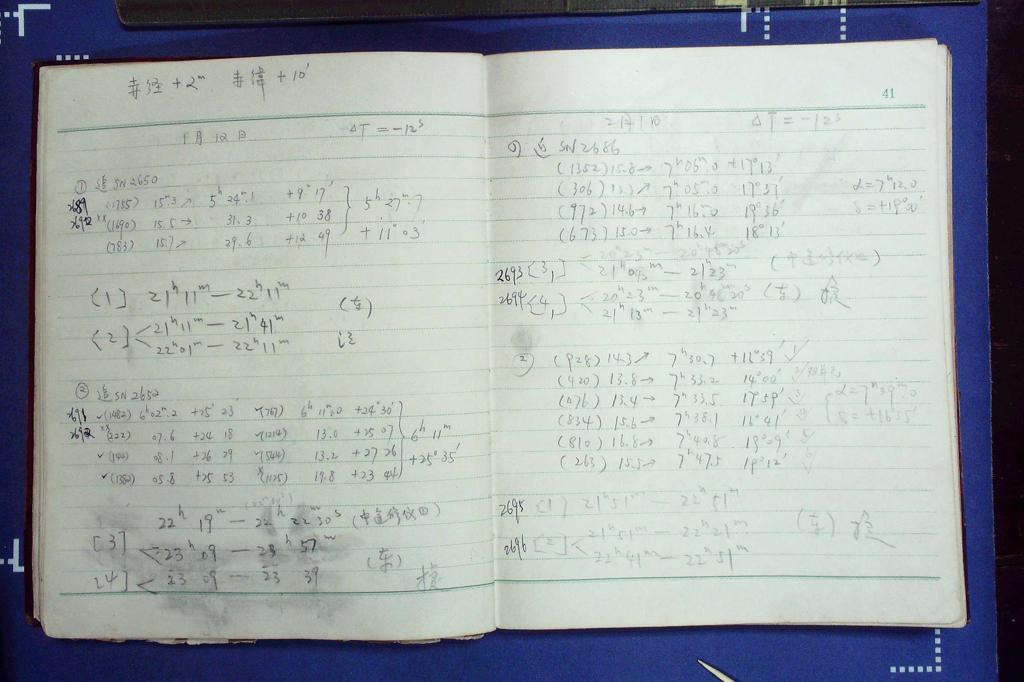 赤経 +2ᵐ 赤緯 +10′
1月 12日 ΔT = −12ˢ
① 追 SN 2650
2689 (1755) 15ᵐ.3 ↗ 5ʰ 24ᵐ.1 +9° 17′
2692 ×× (1690) 15.5 → 31.3 +10 38
(783) 15.7 ↗ 29.6 +12 49
5ʰ 27ᵐ.7
+11° 03′
[1] 21ʰ 11ᵐ — 22ʰ 11ᵐ
(东)
[2] < 21ʰ 11ᵐ — 21ʰ 41ᵐ
22ʰ 01ᵐ — 22ʰ 11ᵐ
② 追 SN 2652
2691 ✓(1482) 6ʰ 02ᵐ.2 +25° 23′ ✓(767) 6ʰ 11ᵐ.0 +24° 30′
×× (222) 07.6 +24 18 ✓(1214) 13.0 +25 07
✓(144) 08.1 +26 29 ✓(544) 13.2 +27 26
✓(1382) 05.8 +25 53 × (1125) 19.8 +23 44
6ʰ 11ᵐ
+25° 35′
22ʰ 19ᵐ — 22ʰ 22ᵐ 30ˢ
[3] < 23ʰ 09 — 23ʰ 57ᵐ
(东)
[4] < 23 09 — 23 39
41
ΔT = −12ˢ
1) 追 SN 2686
(1352) 15.8 → 7ʰ 06ᵐ.0 +17° 13′
(306) 13.3 ↗ 7ʰ 05ᵐ.0 17° 37′
α = 7ʰ 12.0
(972) 14.6 → 7ʰ 16ᵐ.0 19° 36′
δ = +19° 00′
(673) 15.0 → 7ʰ 16.4 18° 13′
2693 [3,] < 20ʰ 23ᵐ —
21ʰ 03ᵐ — 21ʰ 23ᵐ
2694 [4,] < 20ʰ 23ᵐ — 20ʰ 48ᵐ 20ˢ (东)
21ʰ 13ᵐ — 21ʰ 23ᵐ
2) (928) 14.3 ↗ 7ʰ 30.7 +16° 39′
(420) 13.8 → 7ʰ 33.2 14° 00′
(476) 13.4 → 7ʰ 33.5 17° 59′
α = 7ʰ 39ᵐ.0
(834) 15.6 → 7ʰ 38.1 16° 41′
δ = +16° 35′
(810) 16.8 → 7ʰ 40.8 19° 09′
(263) 15.5 → 7ʰ 47.5 19° 12′
2695 [1] 21ʰ 51ᵐ — 22ʰ 51ᵐ
(东)
2696 [2] < 21ʰ 51ᵐ — 22ʰ 21ᵐ
22ʰ 41ᵐ — 22ʰ 51ᵐ